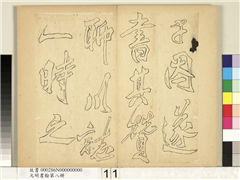 子固遂
書其贊
聊以
一時之
故書 000256N000000000
元明書翰第八冊
11